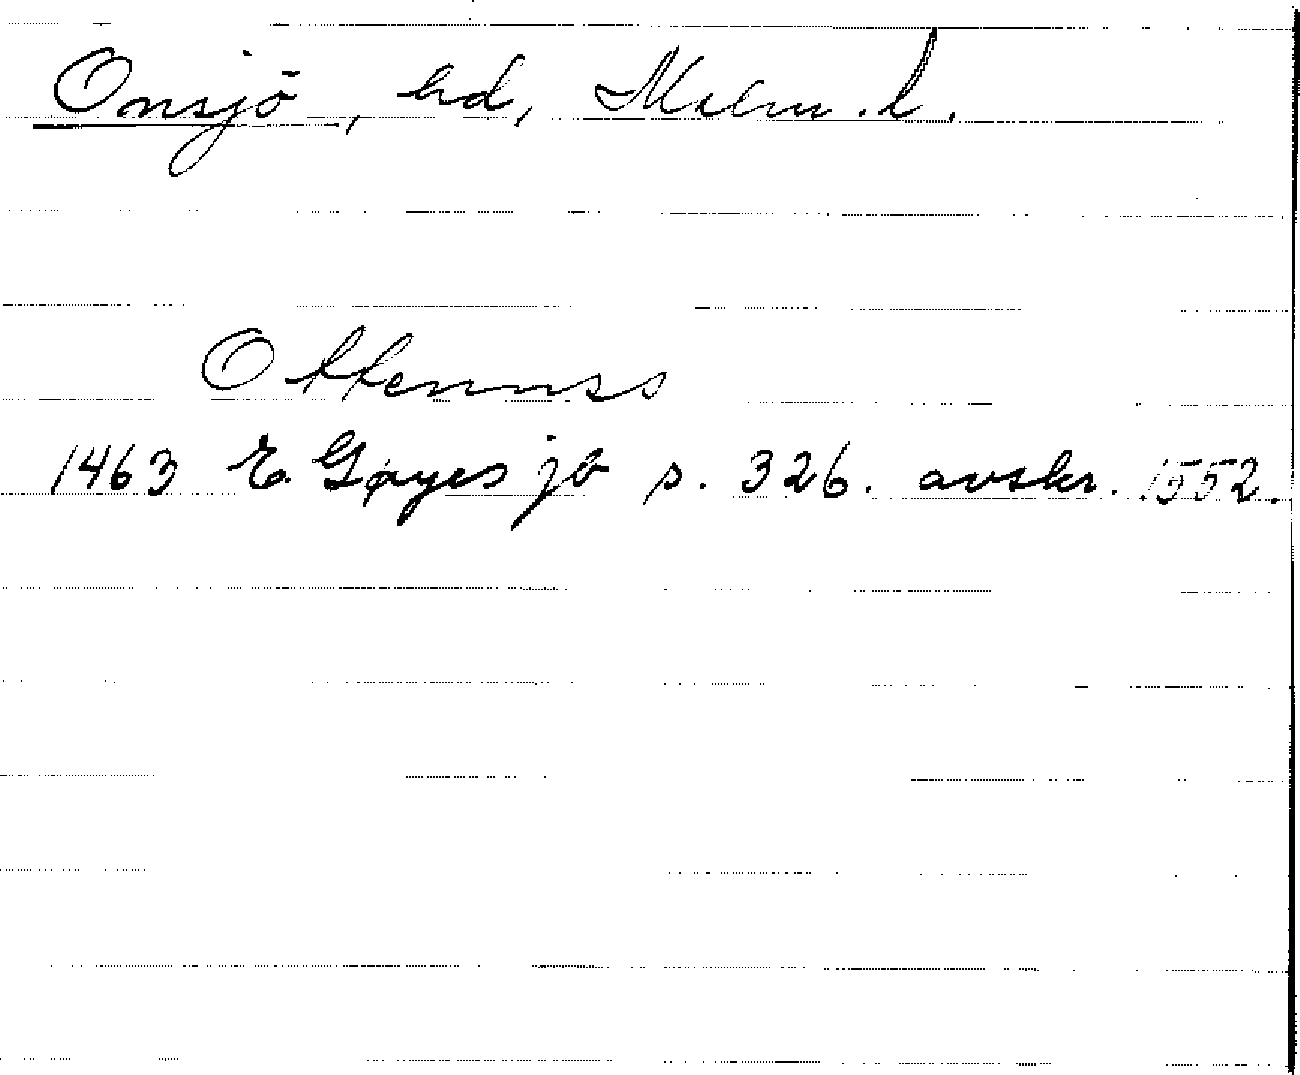 Onsjö, hd, Malm.l.
Ottennss
1463 E. Gøyes jb s. 326. avskr. 1552.